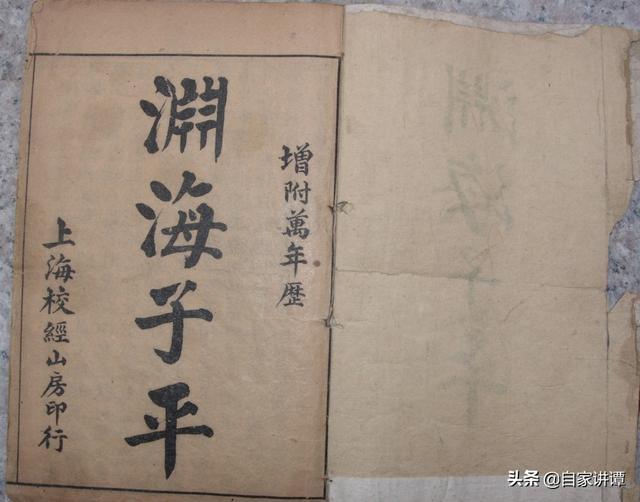 增附萬年歷
淵海子平
上海校經山房印行
头条 @自家讲谭